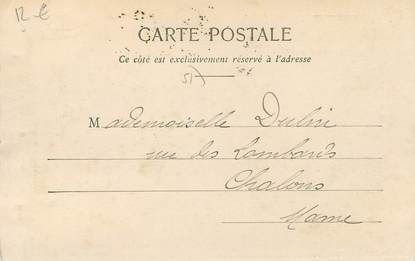 12 €
CARTE POSTALE
Ce côté est exclusivement réservé à l'adresse
51)
Mademoiselle Dulin
rue des Lombards
Chalons
Marne